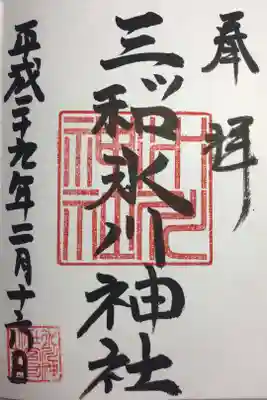 奉拝
三ツ和氷川神社
平成二十九年二月十六日